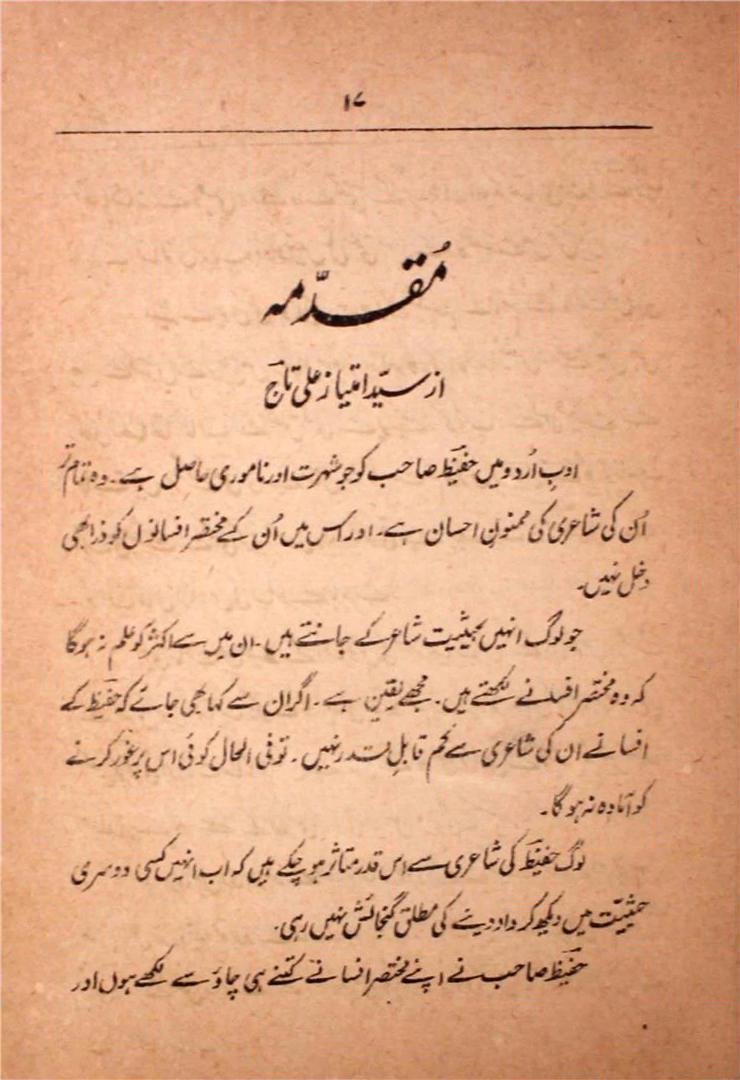 ۱۷
مُقدّمہ
از سیّد امتیاز علی تاجؔ
ادبِ اُردو میں حفیظؔ صاحب کو جو شہرت اور ناموری حاصل ہے۔ وہ تمام تر
اُن کی شاعری کی ممنونِ احسان ہے۔ اور اس میں اُن کے مختصر افسانوں کو ذرا بھی
دخل نہیں۔
جو لوگ انہیں بحیثیت شاعر کے جانتے ہیں۔ ان میں سے اکثر کو علم نہ ہوگا
کہ وہ مختصر افسانے لکھتے ہیں۔ مجھے یقین ہے۔ اگر ان سے کہا بھی جائے کہ حفیظؔ کے
افسانے ان کی شاعری سے کم قابلِ قدر نہیں۔ تو فی الحال کوئی اس پر غور کرنے
کو آمادہ نہ ہوگا۔
لوگ حفیظؔ کی شاعری سے اس قدر متاثر ہو چکے ہیں کہ اب انہیں کسی دوسری
حیثیت میں دیکھ کر داد دینے کی مطلق گنجائش نہیں رہی۔
حفیظؔ صاحب نے اپنے مختصر افسانے کتنے ہی چاؤ سے لکھے ہوں اور